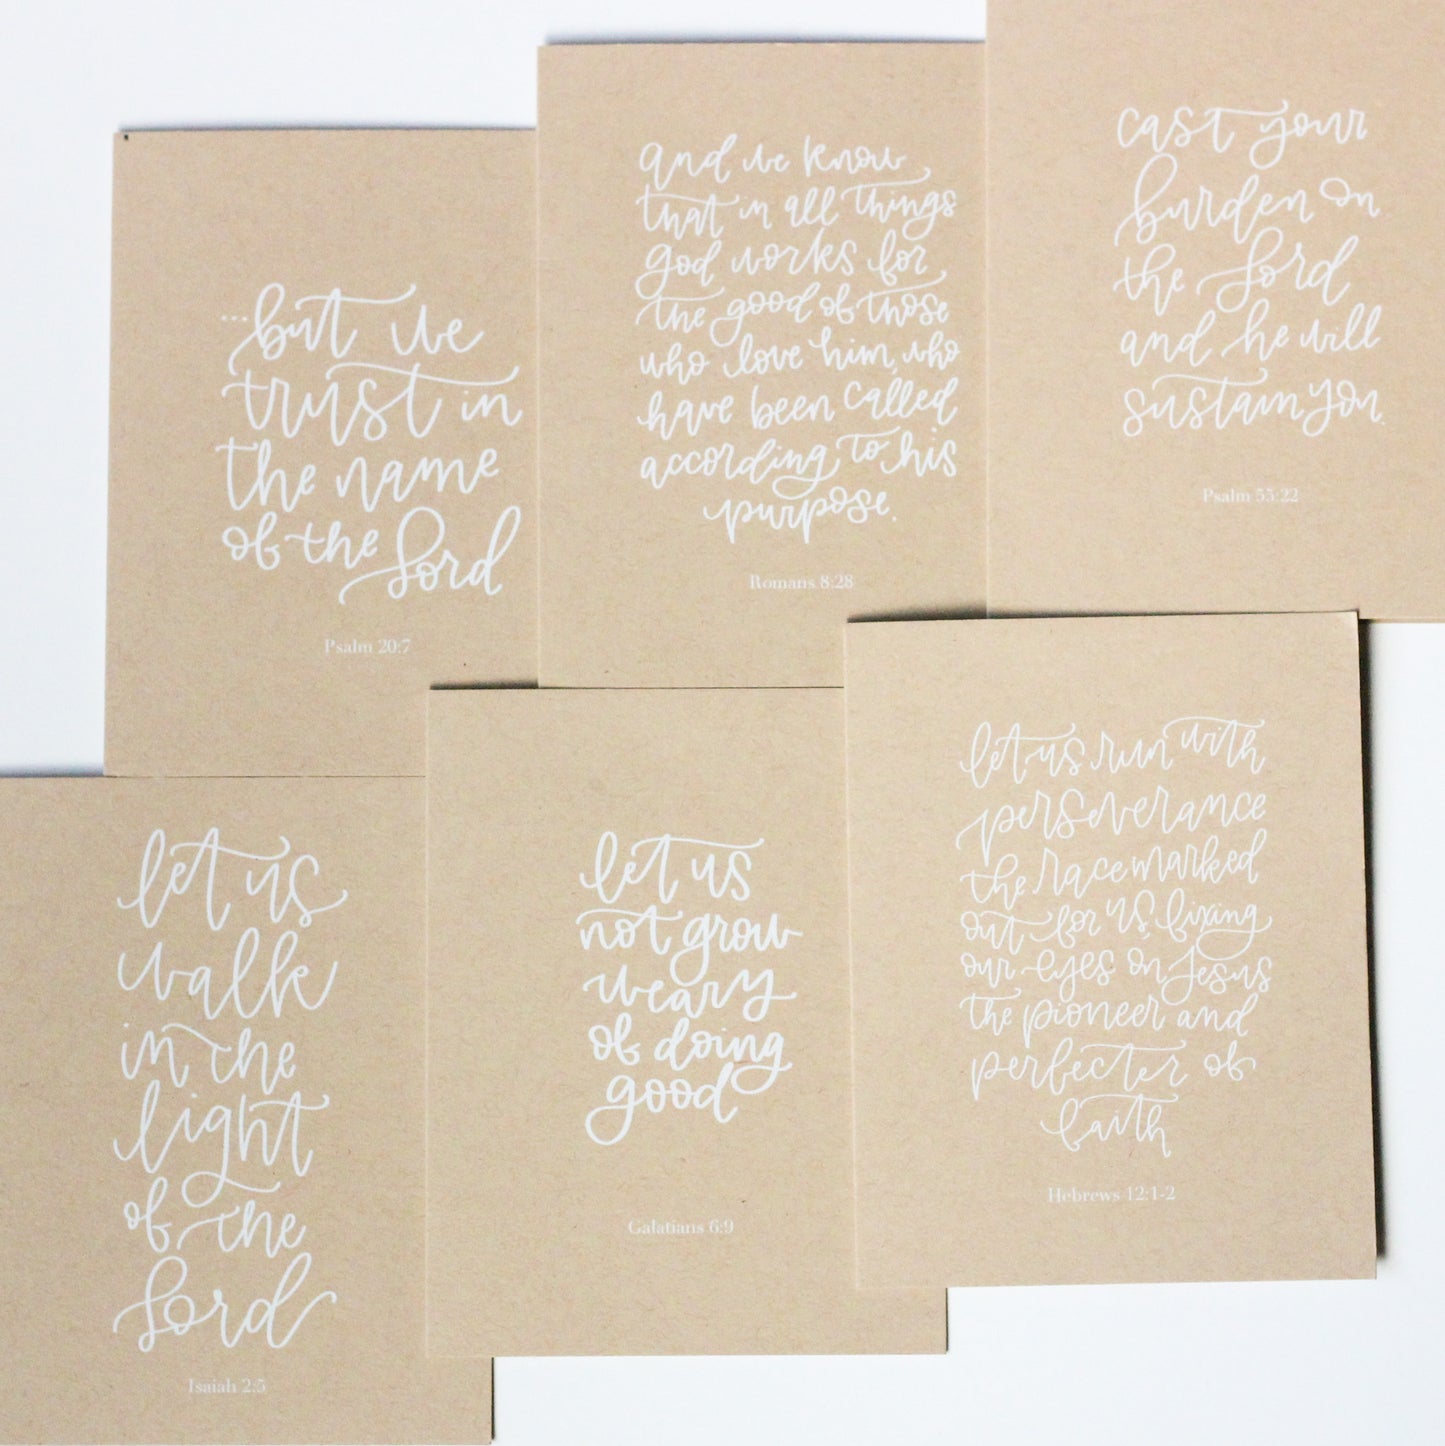 ...but we
trust in
the name
of the Lord
Psalm 20:7
and we know
that in all things
god works for
the good of those
who love him, who
have been called
according to his
purpose.
Romans 8:28
cast your
burden on
the Lord
and he will
sustain you.
Psalm 55:22
let us
walk
in the
light
of the
Lord
Isaiah 2:5
let us
not grow
weary
of doing
good
Galatians 6:9
let us run with
perseverance
the race marked
out for us, fixing
our eyes on Jesus
the pioneer and
perfecter of
faith
Hebrews 12:1-2